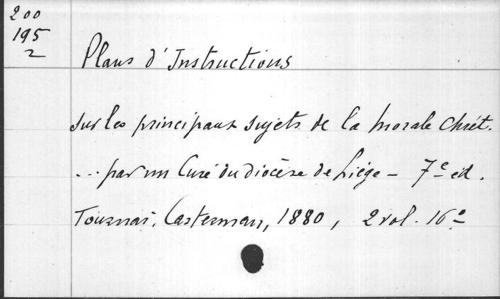 200
195
2
Plans d'Instructions
sur les principaux sujets de la morale Chrét.
... par un Curé du diocèse de Liége – 7e éd.
Tournai, Casterman, 1880, 2 vol. 16°